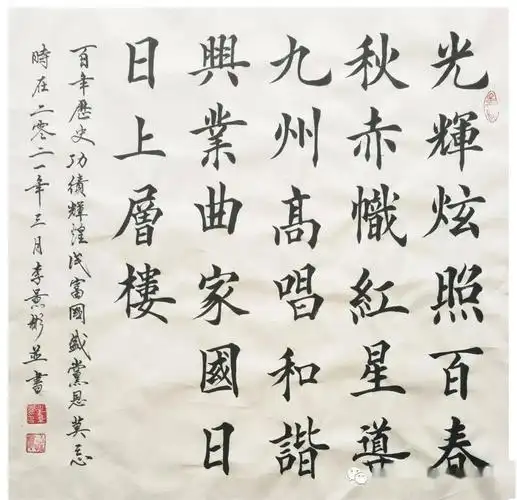 光輝炫照百春
秋赤幟紅星導
九州高唱和諧
興業曲家國日
日上層樓
百年歷史功績輝煌民富國盛黨恩莫忘
時在二零二一年三月李景彬並書